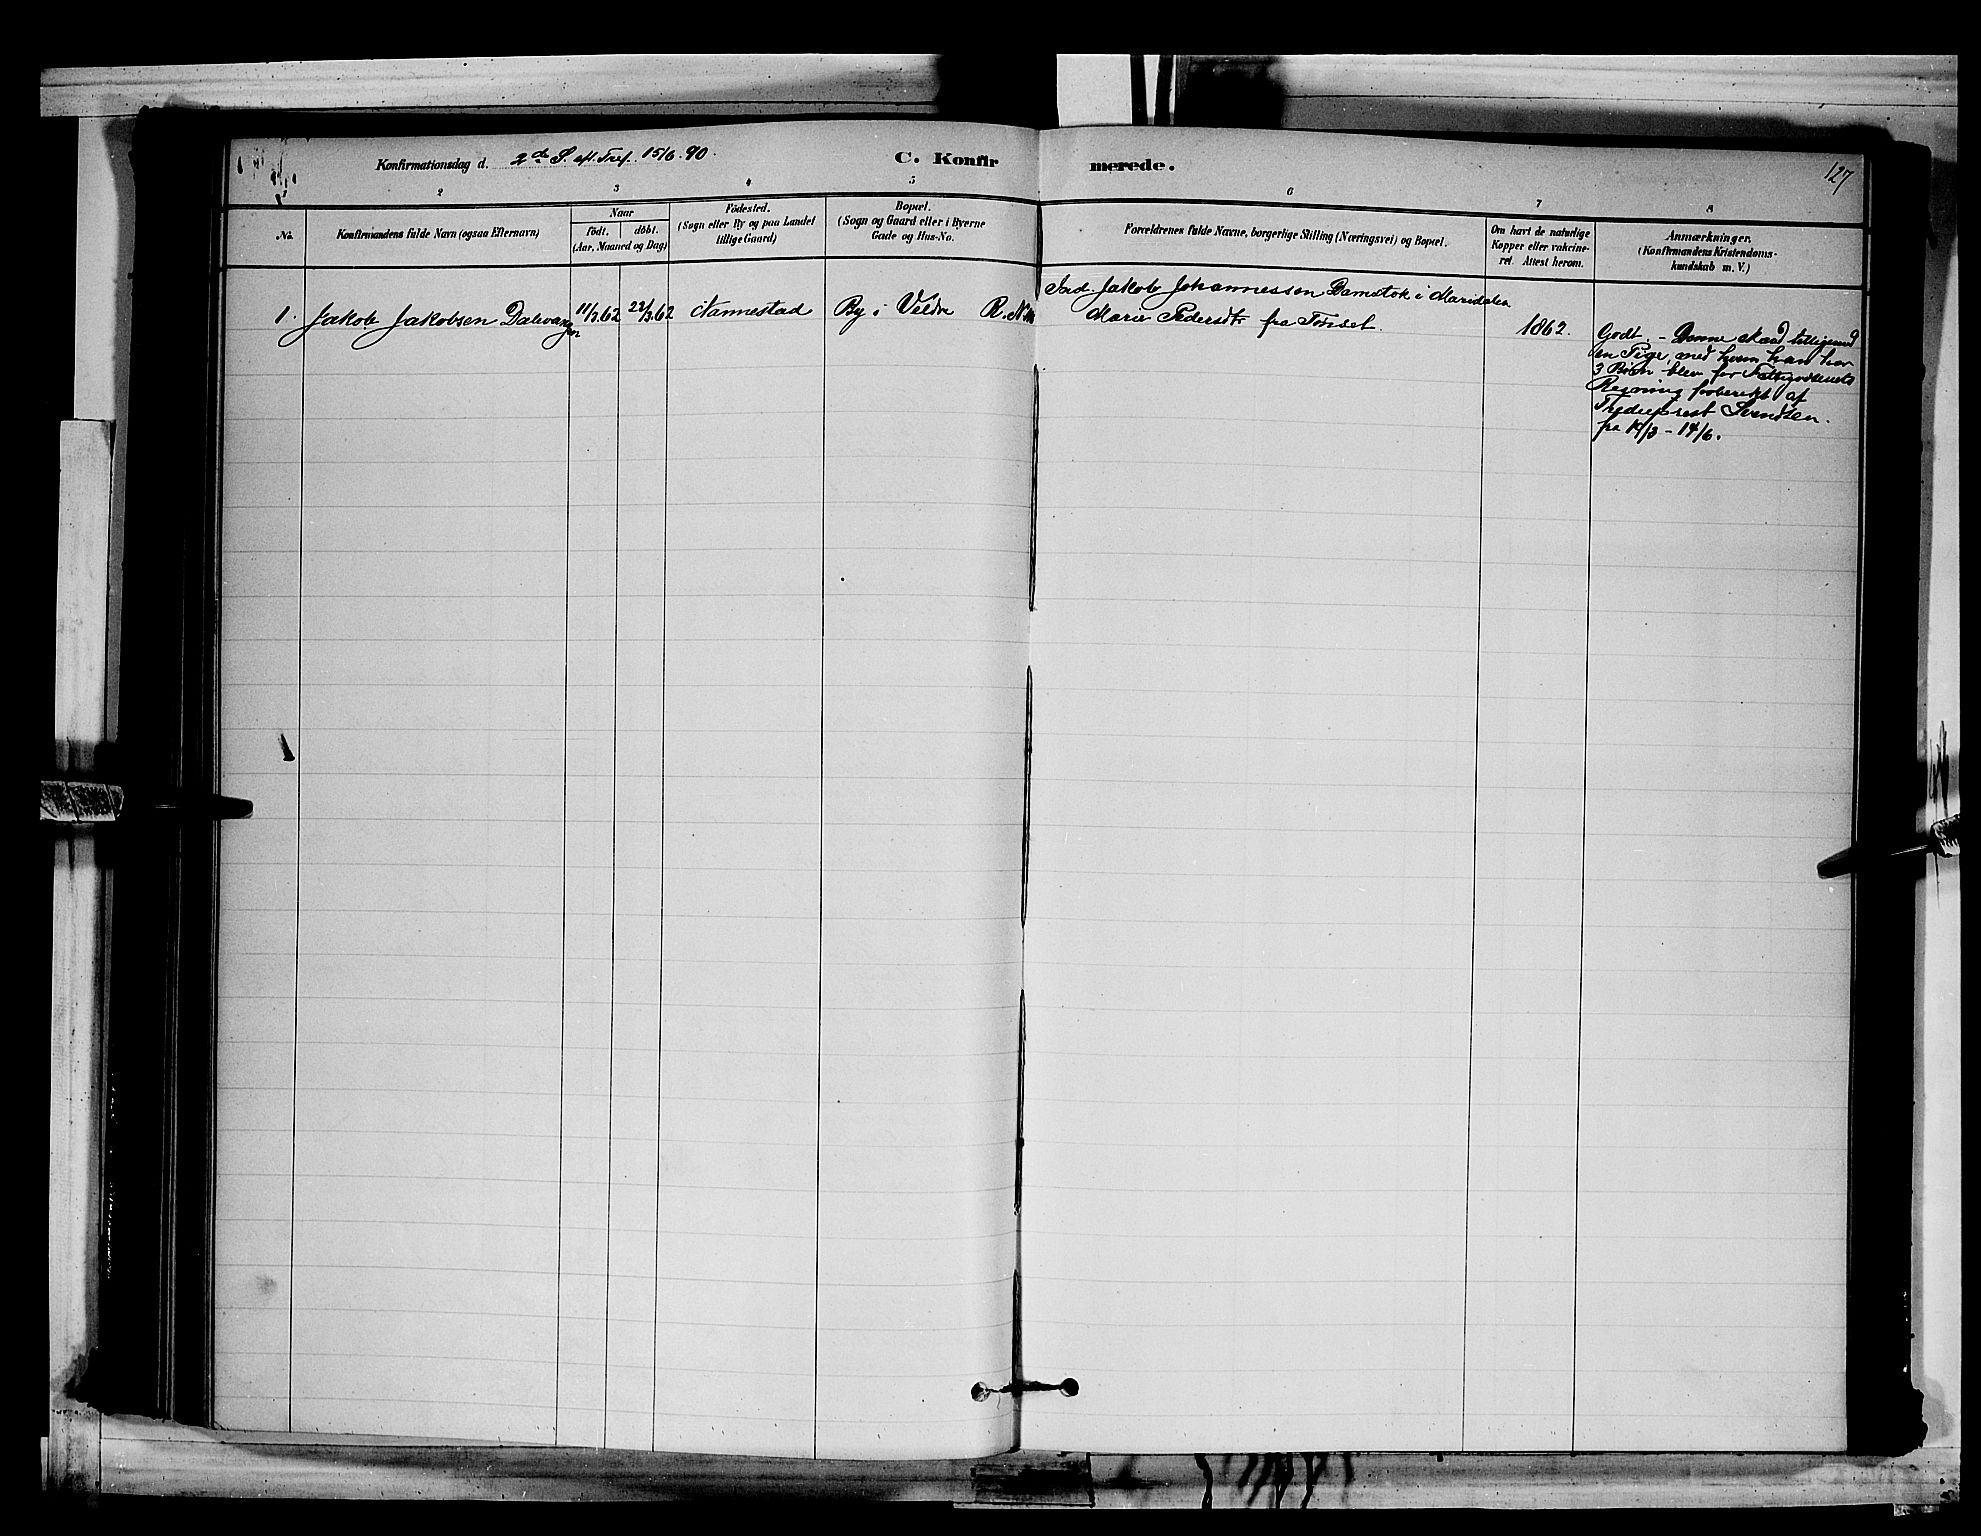 Konfirmationsdag d. 2de S. eft. Tref. 15/6 90.
C. Konfirmerede.
127
1 2 3 4 5 6 7 8
No.
Konfirmandens fulde Navn (ogsaa Efternavn)
Naar
födt. döbt.
(Aar, Maaned og Dag)
Födested.
(Sogn eller By og paa Landet
tillige Gaard)
Bopæl.
(Sogn og Gaard eller i Byerne
Gade og Hus-No.
Forældrenes fulde Navne, borgerlige Stilling (Næringsvei) og Bopæl.
Om havt de naturlige
Kopper eller vakcine-
ret. Attest herom.
Anmærkninger.
(Konfirmandens Kristendoms-
kundskab m. V.)
1. Jakob Jakobsen Dalevangen
11/3 62
22/3 62
Nannestad
By i Veldre R.
Ind. Jakob Johannessen Damstok i Maridalen
Marie Pedersdtr fra Tönset.
1862.
Godt. – Denne skand tilligemed
en Pige, med hvem han har
3 Börn blev for Fattigvæsenets
Regning forberedt af
Trediepræst Svendsen.
fra 19/3 – 14/6.